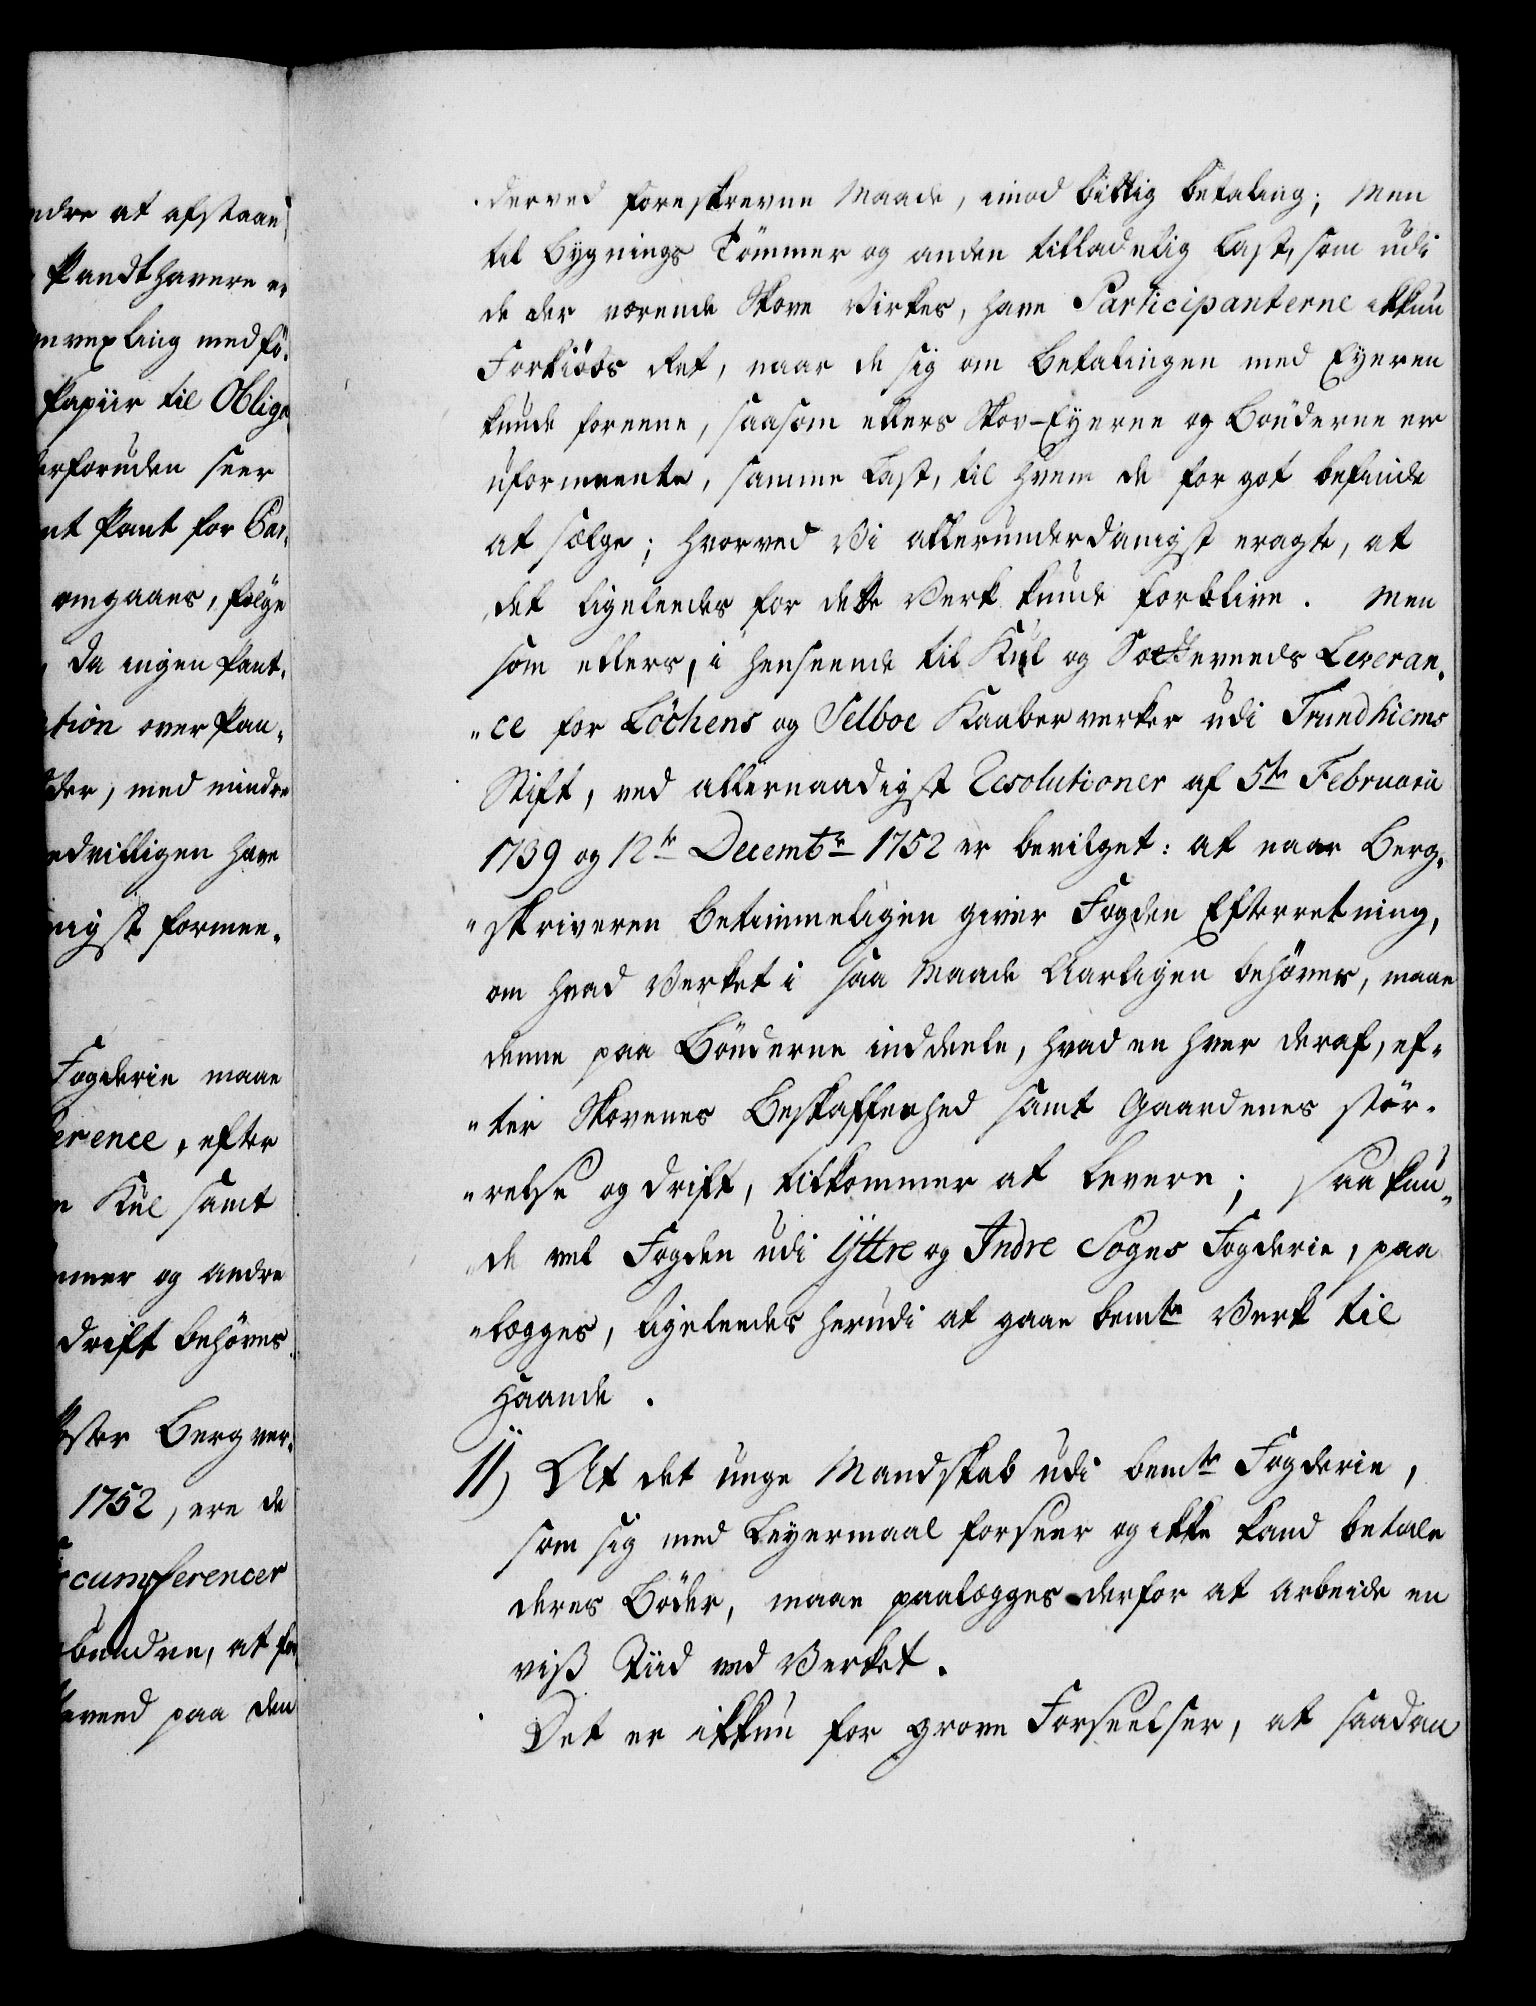 ndre at afstaae
Pandthavere er
mvexling medfö¬
Papiir til Oblig
erforuden seer
nt Pant for Car¬
omgaaes, følge
da ingen Pant¬
ation over Pan¬
der, med mindre
edvilligen have
nigst formee¬
Fogderie maae
ference, efter
Kul samt
mmer og andre
drift behöves
Berg ver¬
1752, ere de
cumferencer
bundne, at
eveed paa den
derved foreskrevne Maade, imod billig betaling; Men
til Bygnings Tömmer og anden tilladelig Last, som udi
de der værende Skove virkes, have Participanterne ikkun
Forkiöbs Ret, naar de sig om Betalingen med Eyeren
kunde foreene, saasom ellers Skov-Eyerne og Bönderne ere
uformeente, samme Last, til hvem de for got befinde
at sælge; hvorved Vi allerunderdanigst eragte, at
det ligeleedes for dette Verk kunde forblive. Men
som ellers, i henseende til Kul og Sætteveeds Leveran¬
"ce for Löchens og Selboe Kaaberverker udi Trundhiems
Stift, ved allernaadigst Resolutioner af 5te Februarii
1739 og 12te Decembr 1752 er bevilget: at naar Berg¬
"skriveren betimmeligen giver Fogden Efterretning,
om hvad Verket i saa Maade Aarligen behöver, maae
denne paa Bönderne inddeele, hvad en hver deraf, ef¬
"ter Skovenes Beskaffenhed samt Gaardenes stör¬
"relse og drift, tilkommer at levere; saa kun¬
"de vel Fogden udi Yttre og Indre Sogns Fogderie, paa
"lægges, ligeleedes herudi at gaae bemte Verk til
Haande.
11) At det unge Mandskab udi bemte Fogderie,
som sig med Leyermaal forseer og ikke kand betale
deres Böder, maae paalægges derfor at arbeide en
viss Tiid ved Verket.
Det er ikkun for grove Forseelser, at saadan